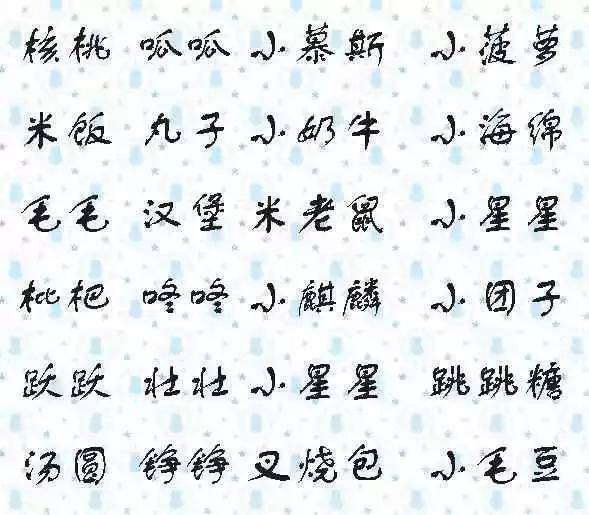 核桃 呱呱 小慕斯 小菠萝
米饭 丸子 小奶牛 小海绵
毛毛 汉堡 米老鼠 小星星
枇杷 咚咚 小麒麟 小团子
跃跃 壮壮 小星星 跳跳糖
汤圆 铮铮 叉烧包 小毛豆